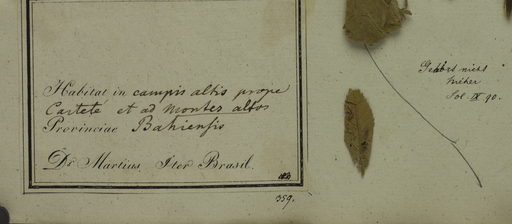 Habitat in campis altis prope
Carteté et ad montes altos
Provinciae Bahiensis
Dr Martius Iter Brasil.
359.
Gehört nicht
hieher
Sol. IX 90.